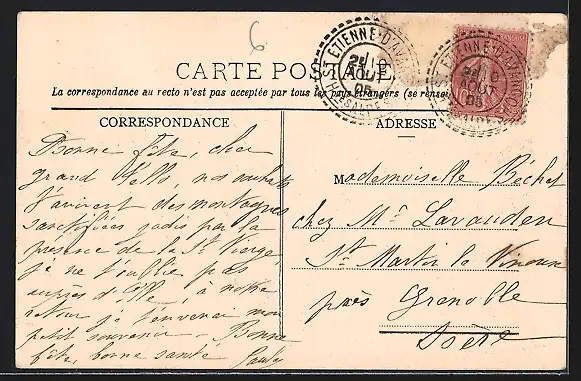 6
CARTE POSTALE
La correspondance au recto n'est pas acceptée par tous les pays étrangers (se rense
ST ETIENNE-D'AVA
AOUT
05
HTES ALPES
CORRESPONDANCE
ADRESSE
Bonne fête, cher
grand Lello, nos souhaits
t'arrivent des montagnes
sanctifiées jadis par la
présence de la Ste Vierge
je ne t'oublie pas
auprès d'Elle, à notre
retour je t'enverrai mon
petit souvenir. Bonne
fête, bonne santé
Mademoiselle Béchet
chez Mr Lavauden
St Martin le Vinoux
près Grenoble
Isère